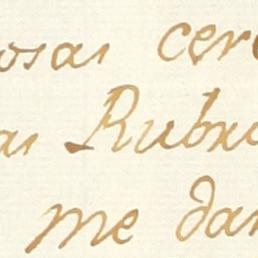 osas cere
as Rubri
me dan